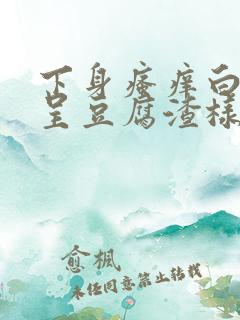 下身瘙痒白
呈豆腐渣樣
愈楓
未经同意禁止转载